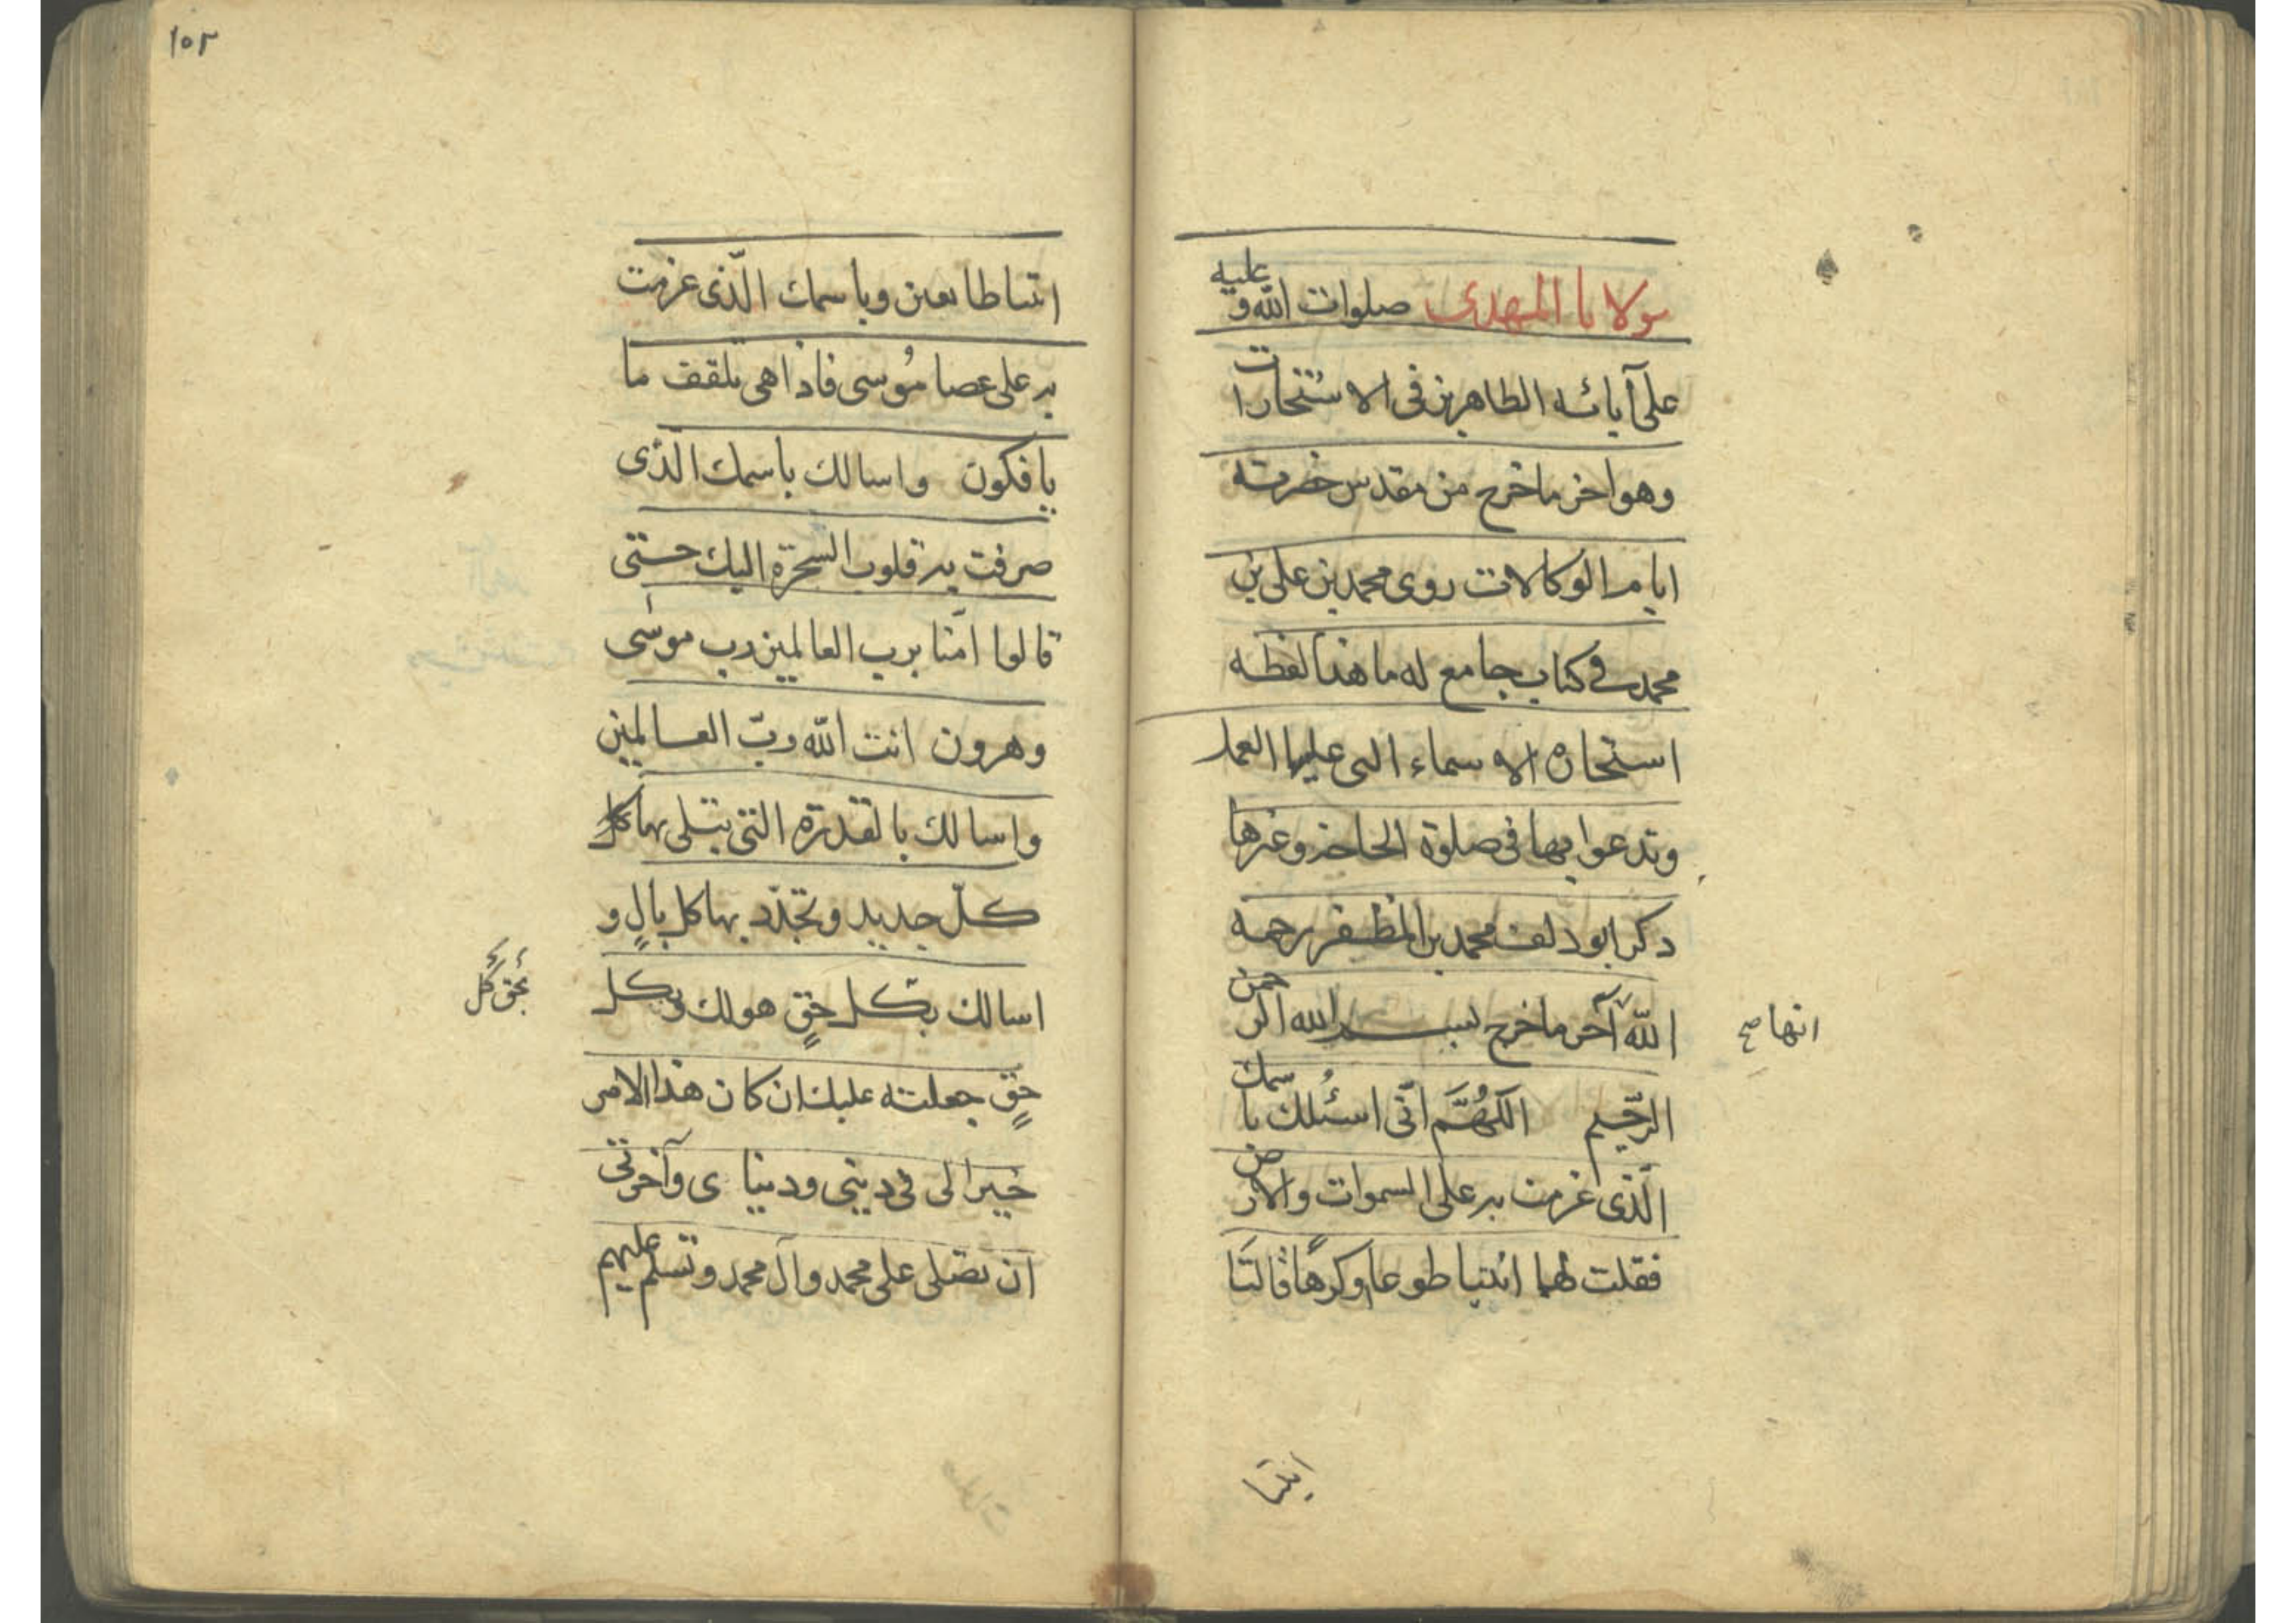 مولانا المهدى صلوات الله و عليه
على آبائه الطاهرين فى الاستخارات
وهو اخر ما خرج من مقدس حضرته
ايام الوكالات روى محمد بن على بن
محمد فى كتاب جامع له ما هذا لفظه
استخارة الاسماء التى عليها العمل
وتدعوا بها فى صلوة الحاجة وغيرها
ذكر ابو دلف محمد بن المظفر رحمه
الله آخر ما خرج بسم الله الرحمن
انها صح
الرّحيم اللّهُمَّ انّى اسئلُك باسمك
الّذى عزمت به على السموات والارض
فقلت لهما ائتيا طوعا وكرهاً قالتَا
اتينا
١٥٢
اتينا طايعين وباسمك الّذى عزمت
به على عصا مُوسى فاذا هى تلقف ما
يافكون واسالك باسمك الّذى
صرفت به قلوب السحرة اليك حتّى
قالوا امّنا برب العالمين رب موسٰى
وهرون انت الله ربّ العالمين
واسالك بالقدرة التى تبلى بها كل
كلّ جديد وتجدّد بها كل بالٍ و
اسالك بكل حقٍ هو لك وبكل
بحق كل
حقٍ جعلته عليك ان كان هذا الامر
خيرا لى فى دينى ودنياى وآخرتى
ان تصلى على محمد وآل محمد وتسلم عليهم